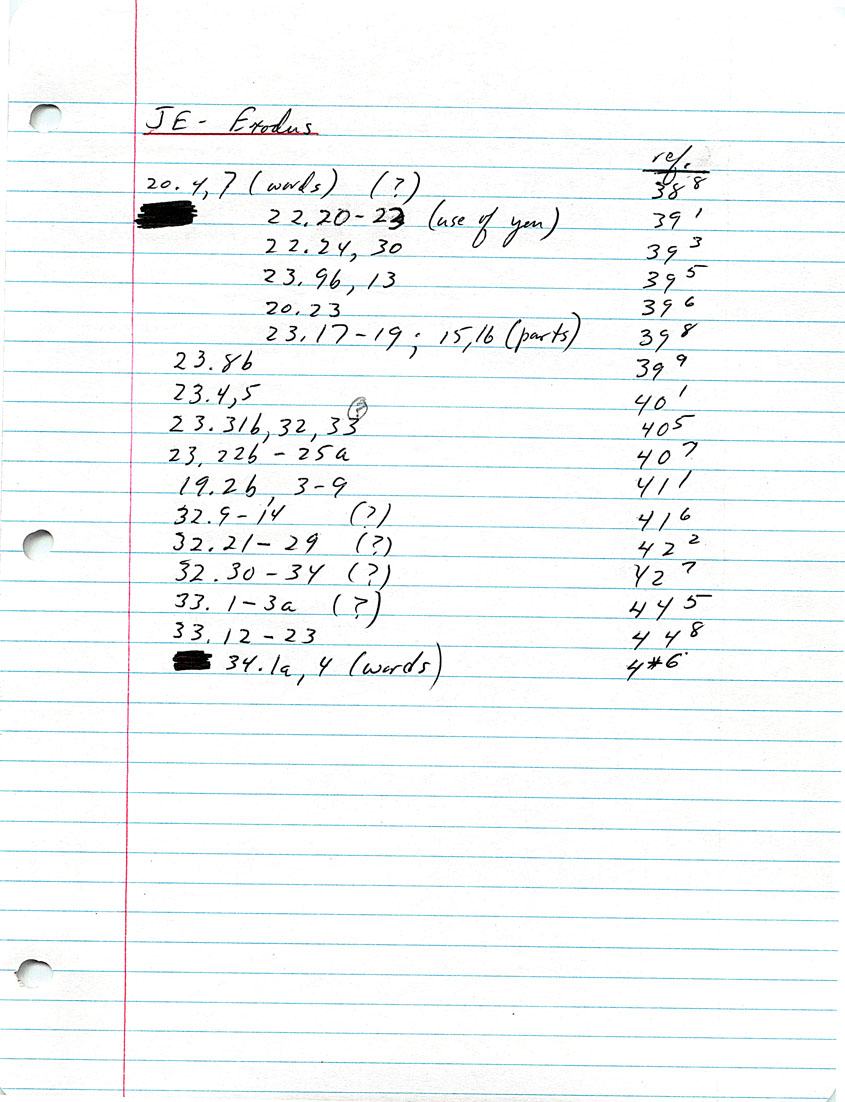 JE - Exodus
ref.
20.4,7 (words) (?) 38⁸
22.20-23 (use of you) 39¹
22.24, 30 39³
23.9b, 13 39⁵
20.23 39⁶
23.17-19; 15,16 (parts) 39⁸
23.8b 39⁹
23.4,5 40¹
23.31b, 32, 33 (?) 40⁵
23.22b - 25a 40⁷
19.2b, 3-9 41¹
32.9-14 (?) 41⁶
32.21-29 (?) 42²
32.30-34 (?) 42⁷
33.1-3a (?) 44⁵
33.12-23 44⁸
34.1a, 4 (words) 4*6